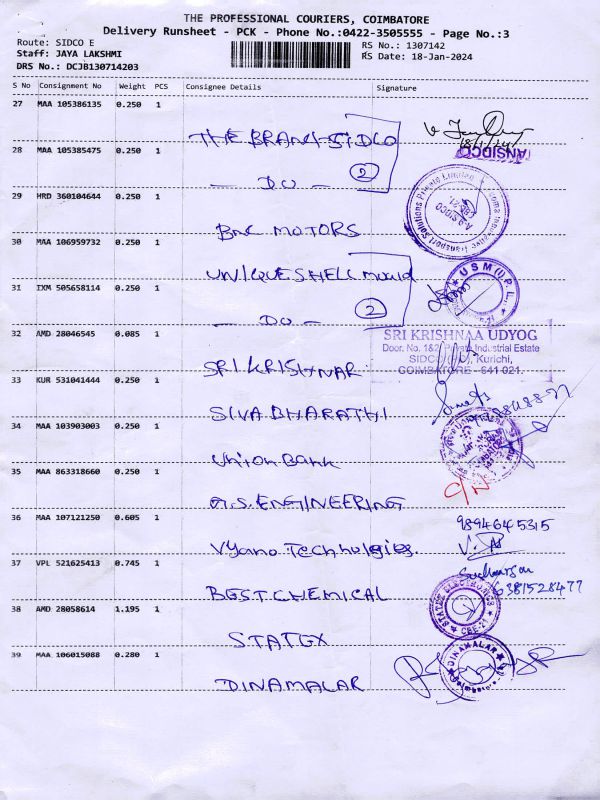 THE PROFESSIONAL COURIERS, COIMBATORE
Delivery Runsheet - PCK - Phone No.:0422-3505555 - Page No.:3
Route: SIDCO E
Staff: JAYA LAKSHMI
DRS No.: DCJB130714203
RS No.: 1307142
RS Date: 18-Jan-2024
S No Consignment No Weight PCS Consignee Details Signature
27 MAA 105386135 0.250 1
THE BRANCH SIDCO
18/1/24
TANSIDCO
28 MAA 105385475 0.250 1
— DO — 2
29 HRD 360104644 0.250 1
BNC MOTORS
30 MAA 106959732 0.250 1
UNIQUE SHELL mould
U S M (I) P. L.
31 IXM 505658114 0.250 1
— DO — 2
32 AMD 28046545 0.085 1
SRI KRISHNAR
SRI KRISHNAA UDYOG
Door. No. 1&2, Private Industrial Estate
SIDCO, Kurichi,
COIMBATORE - 641 021.
33 KUR 531041444 0.250 1
SIVA BHARATHI
34 MAA 103903003 0.250 1
Union Bank
35 MAA 863318660 0.250 1
G.S. ENGINEERING
C/N
36 MAA 107121250 0.605 1
Vyano Technologies.
9894645315
37 VPL 521625413 0.745 1
BEST CHEMICAL
6381528477
38 AMD 28058614 1.195 1
STATEX
STATEX ELECTRONICS
CBE-21
39 MAA 106015088 0.280 1
DINAMALAR
DINAMALAR
Coimbatore